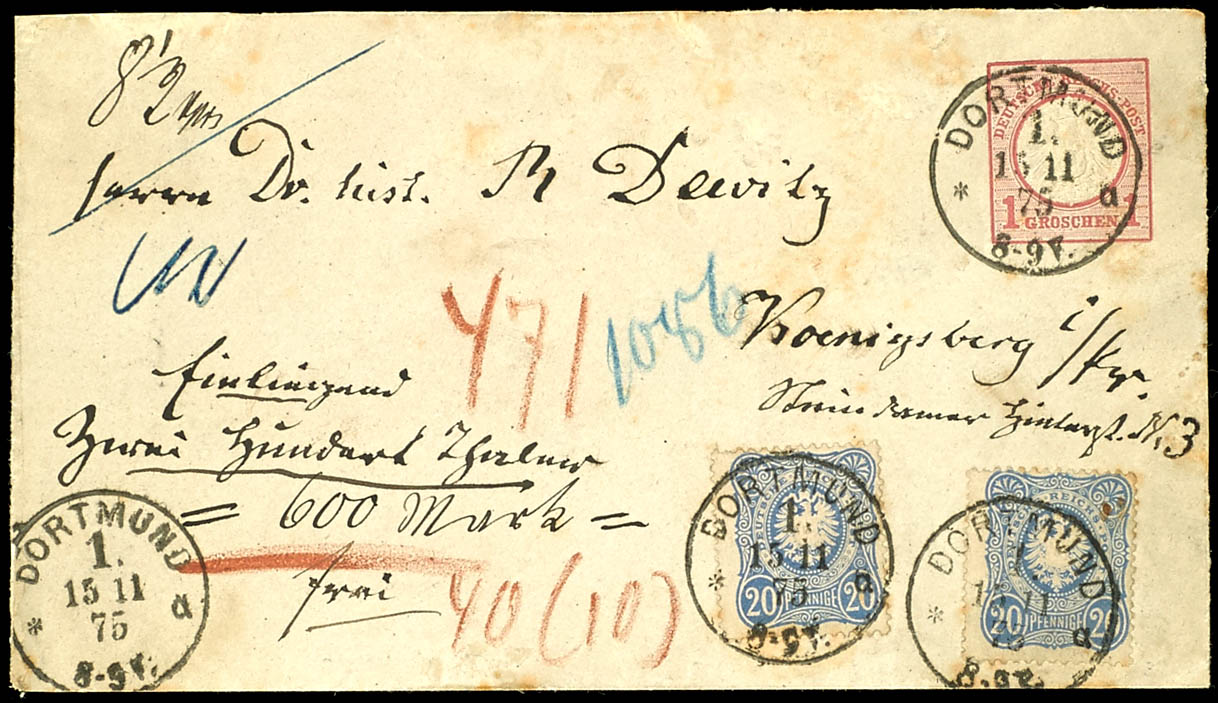 8 1/2
Herrn Dr. hist. R Dewitz
DEUTSCHE REICHS-POST
1 GROSCHEN 1
DORTMUND
1.
15 11
75
* a
8-9V.
471
1086
Koenigsberg i/Pr.
Steindamer Hinterst. N. 3
Einliegend
Zwei Hundert Thaler
= 600 Mark =
frei
40 (10)
DORTMUND
1.
15 11
75
* a
8-9V.
REICHS
20 PFENNIGE 20
DORTMUND
1.
15 11
75
* a
8-9V.
REICHS
20 PFENNIGE 20
DORTMUND
1.
15 11
75
* a
8-9V.